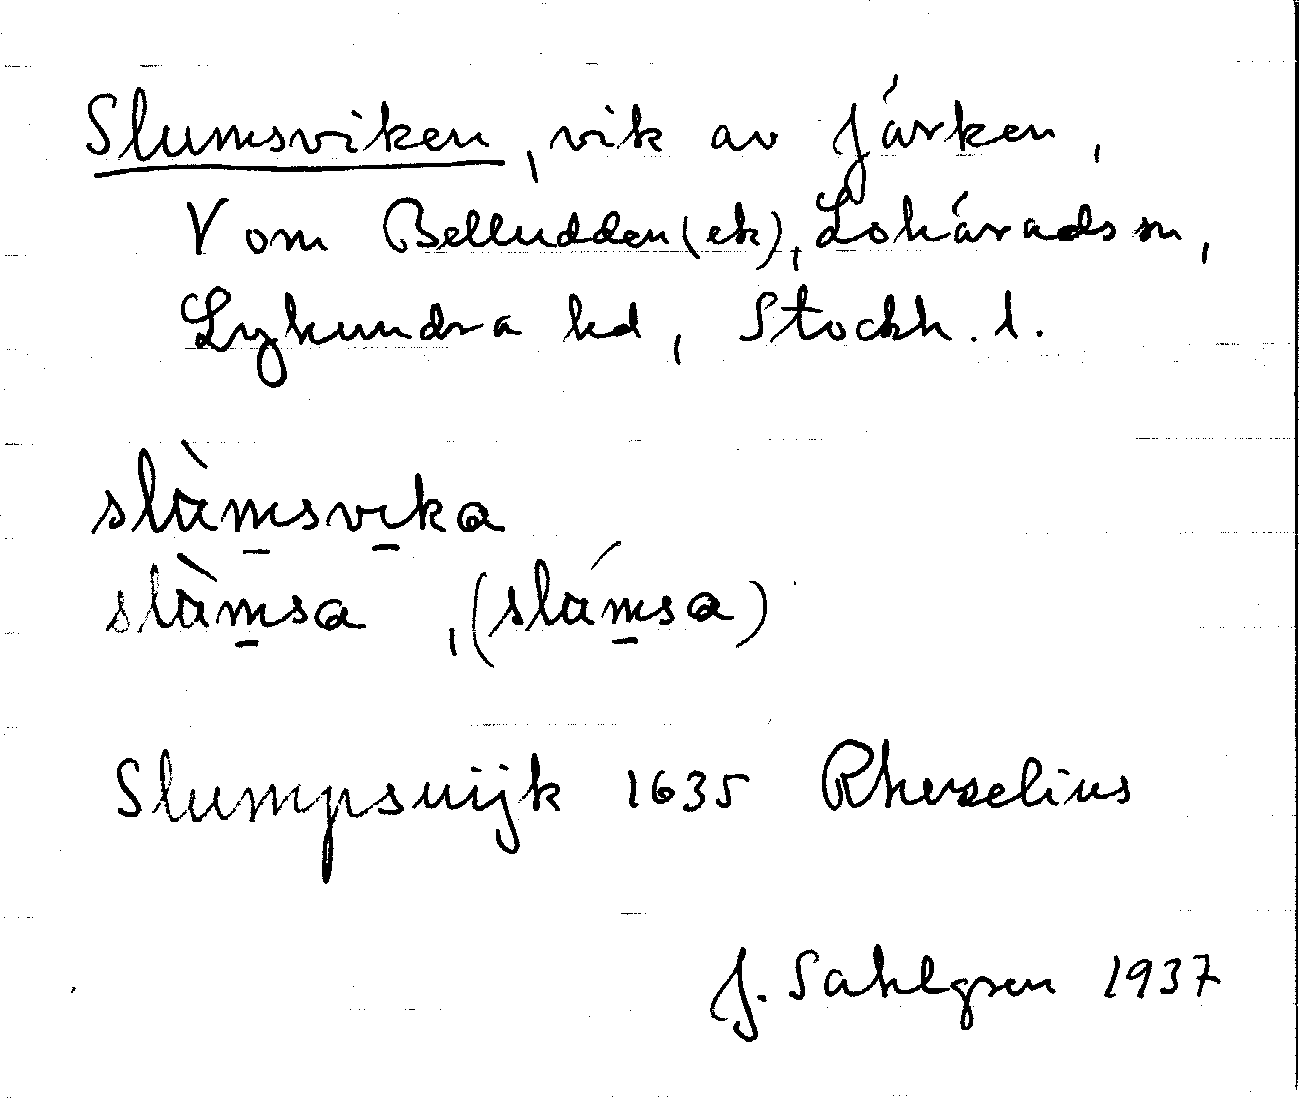 Slumsviken, vik av Järken,
V om Belludden (ek), Lohärads sn,
Lyhundra hd, Stockh. l.
slὰmsvika
slὰmsa, (slάmsa)
Slumpsuijk 1635 Rhezelius
J. Sahlgren 1937